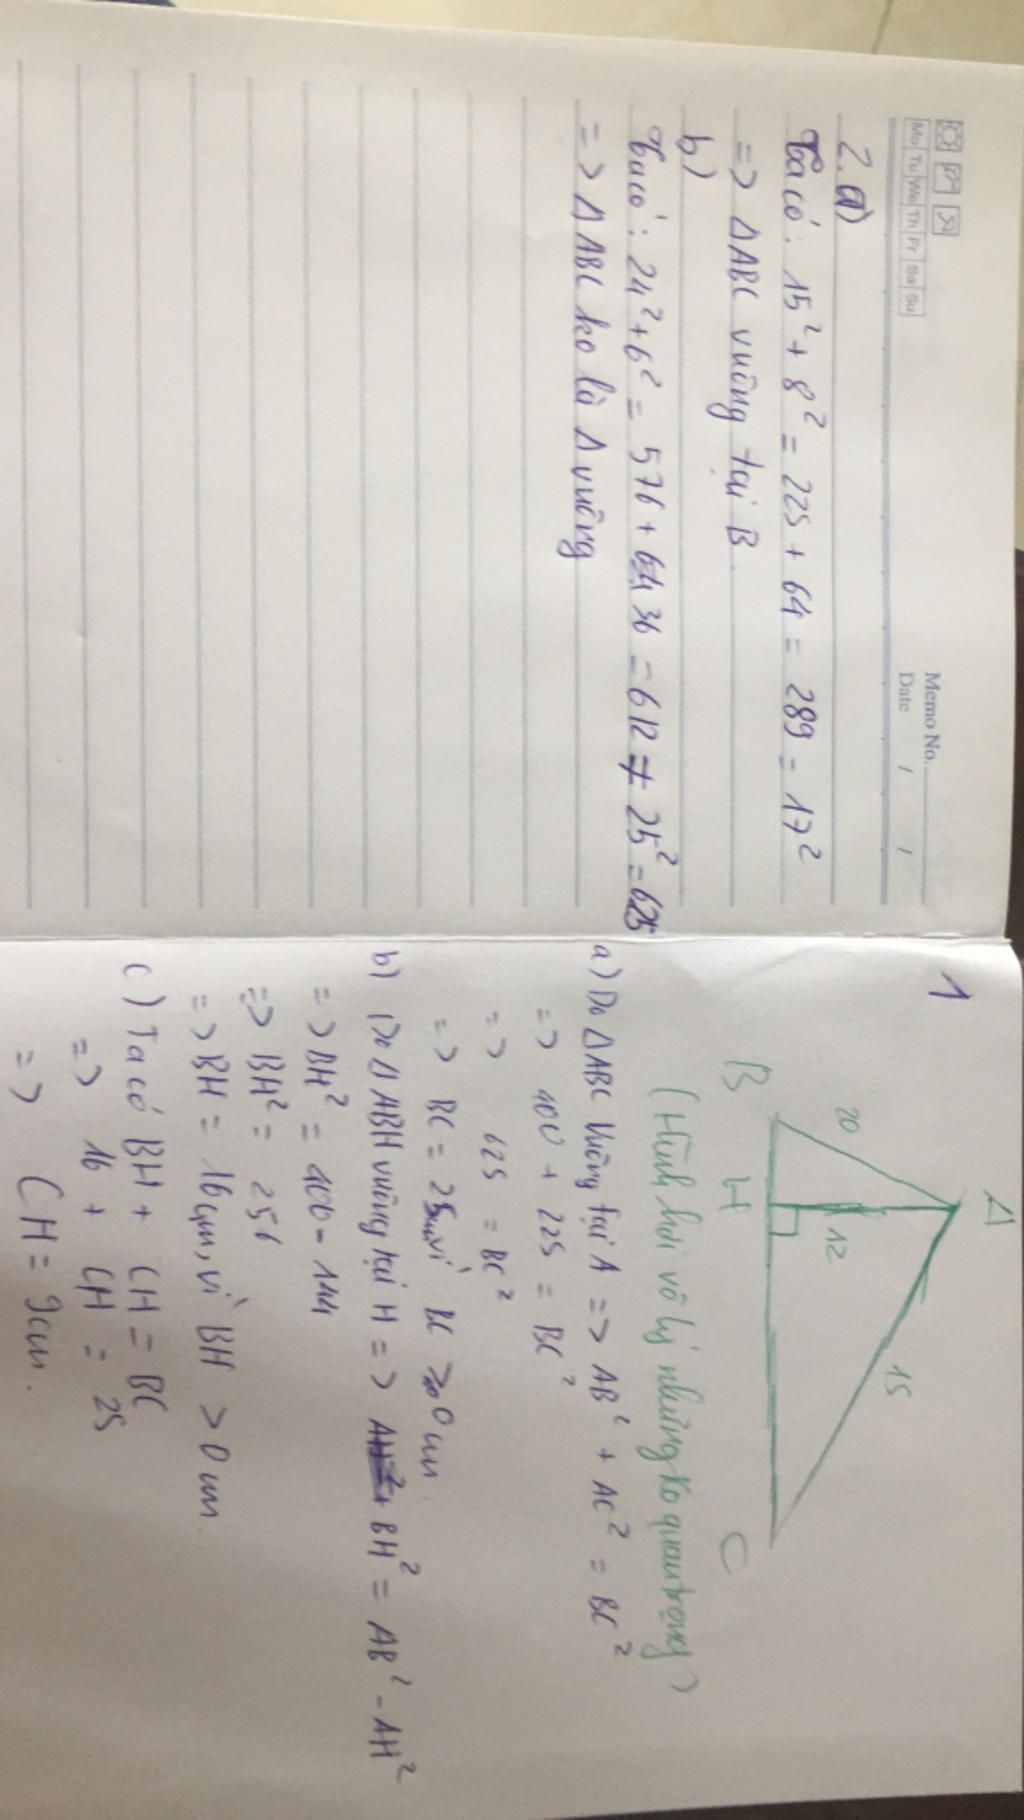 Memo No.
Mo Tu We Th Fr Sa Su
Date / /
2. a)
Ta có: 15² + 8² = 225 + 64 = 289 = 17²
=> ΔABC vuông tại B.
b)
Ta có: 24² + 6² = 576 + 36 = 612 ≠ 25² = 625
=> ΔABC ko là Δ vuông
1
A
20
12
15
B
H
C
(Hình hơi vô lý nhưng ko quan trọng)
a) Do ΔABC vuông tại A => AB² + AC² = BC²
=> 400 + 225 = BC²
=> 625 = BC²
=> BC = 25cm vì BC > 0 cm.
b) Do ΔABH vuông tại H => BH² = AB² - AH²
=> BH² = 400 - 144
=> BH² = 256
=> BH = 16cm, vì BH > 0 cm.
c) Ta có BH + CH = BC
=> 16 + CH = 25
=> CH = 9cm.